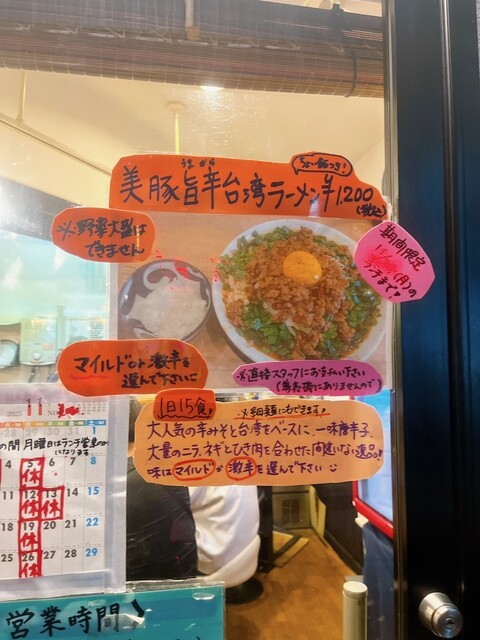 ちょい飯つき!
うま から
美豚旨辛台湾ラーメン¥1,200
(税込)
※野菜大盛は
できません
期間限定
(月)の
ランチまで
マイルドor激辛を
選んで下さい
※直接スタッフにお支払い下さい
(券売機にありませんので)
1日15食
※細麺にもできます
大人気の辛みそと台湾をベースに、一味唐辛子、
大量のニラ、ネギとひき肉を合わせた間違いない逸品!
味はマイルドか激辛を選んで下さい
2025 11
の間月曜日はランチ営業のみ
になります
4 5 6 7 8 1
休
11 12 13 14 15
休 休
18 19 20 21 22
休
25 26 27 28 29
休
営業時間